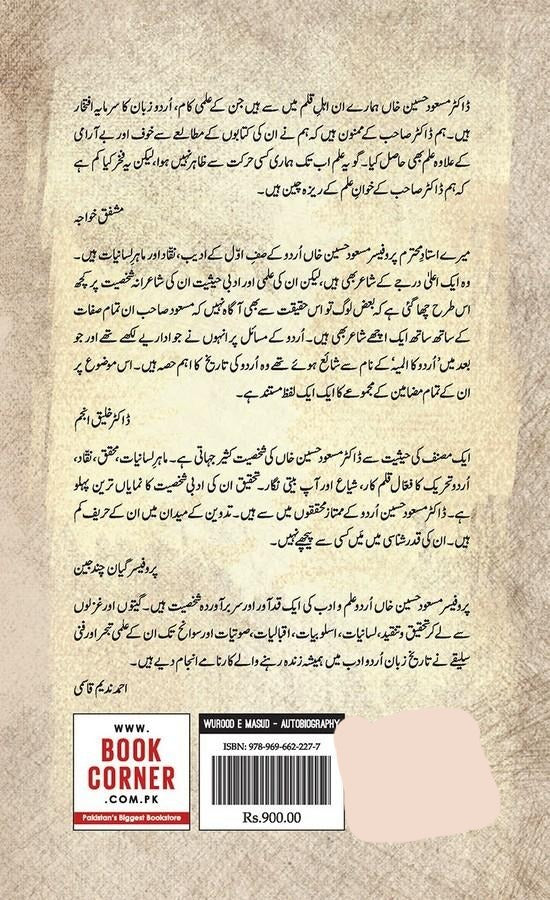 ڈاکٹر مسعود حسین خاں ہمارے ان اہلِ قلم میں سے ہیں جن کے علمی کام، اُردو زبان کا سرمایہ افتخار
ہیں۔ ہم ڈاکٹر صاحب کے ممنون ہیں کہ ہم نے ان کی کتابوں کے مطالعے سے خوف اور بے آرامی
کے علاوہ علم بھی حاصل کیا۔ گو یہ علم اب تک ہماری کسی حرکت سے ظاہر نہیں ہوا، لیکن یہ فخر کیا کم ہے
کہ ہم ڈاکٹر صاحب کے خوانِ علم کے ریزہ چین ہیں۔
مشفق خواجہ
میرے استادِ محترم پروفیسر مسعود حسین خاں اُردو کے صف اوّل کے ادیب، نقاد اور ماہرِ لسانیات ہیں۔
وہ ایک اعلیٰ درجے کے شاعر بھی ہیں، لیکن ان کی علمی اور ادبی حیثیت ان کی شاعرانہ شخصیت پر کچھ
اس طرح چھا گئی ہے کہ بعض لوگ تو اس حقیقت سے بھی آگاہ نہیں کہ مسعود صاحب ان تمام صفات
کے ساتھ ساتھ ایک اچھے شاعر بھی ہیں۔ اُردو کے مسائل پر انہوں نے جو اداریے لکھے تھے اور جو
بعد میں 'اُردو کا المیہ' کے نام سے شائع ہوئے تھے وہ اُردو کی تاریخ کا اہم حصہ ہیں۔ اس موضوع پر
ان کے تمام مضامین کے مجموعے کا ایک ایک لفظ مستند ہے۔
ڈاکٹر خلیق انجم
ایک مصنف کی حیثیت سے ڈاکٹر مسعود حسین خاں کی شخصیت کثیر جہاتی ہے۔ ماہرِ لسانیات، محقق، نقاد،
اُردو تحریک کا فعال قلم کار، شاعر اور آپ بیتی نگار۔ تحقیق ان کی ادبی شخصیت کا نمایاں ترین پہلو
ہے۔ ڈاکٹر مسعود حسین اُردو کے ممتاز محققوں میں سے ہیں۔ تدوین کے میدان میں ان کے حریف کم
ہیں۔ ان کی قدر شناسی میں مَیں کسی سے پیچھے نہیں۔
پروفیسر گیان چند جین
پروفیسر مسعود حسین خاں اُردو علم و ادب کی ایک قد آور اور سربرآوردہ شخصیت ہیں۔ گیتوں اور غزلوں
سے لے کر تحقیق و تنقید، لسانیات، اسلوبیات، اقبالیات، صوتیات اور سوانح تک ان کے علمی تبحر اور فنی
سلیقے نے تاریخِ زبان اُردو ادب میں ہمیشہ زندہ رہنے والے کارنامے انجام دیے ہیں۔
احمد ندیم قاسمی
WWW.
BOOK
CORNER
.COM.PK
Pakistan's Biggest Bookstore
WUROOD E MASUD - AUTOBIOGRAPHY
ISBN: 978-969-662-227-7
Rs.900.00